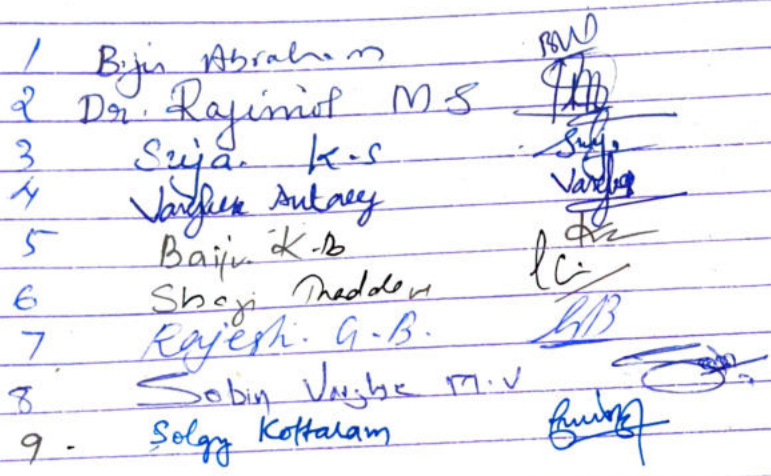 1 Biju Abraham
2 Dr. Rajimol M S
3 Sija. K.S
4 Varghese Antony Varghese
5 Baiju. K.B
6 Shaji Thaddeus
7 Rajesh. G.B. GB
8 Sobin Varghse M.V
9. Solgy Kottaram